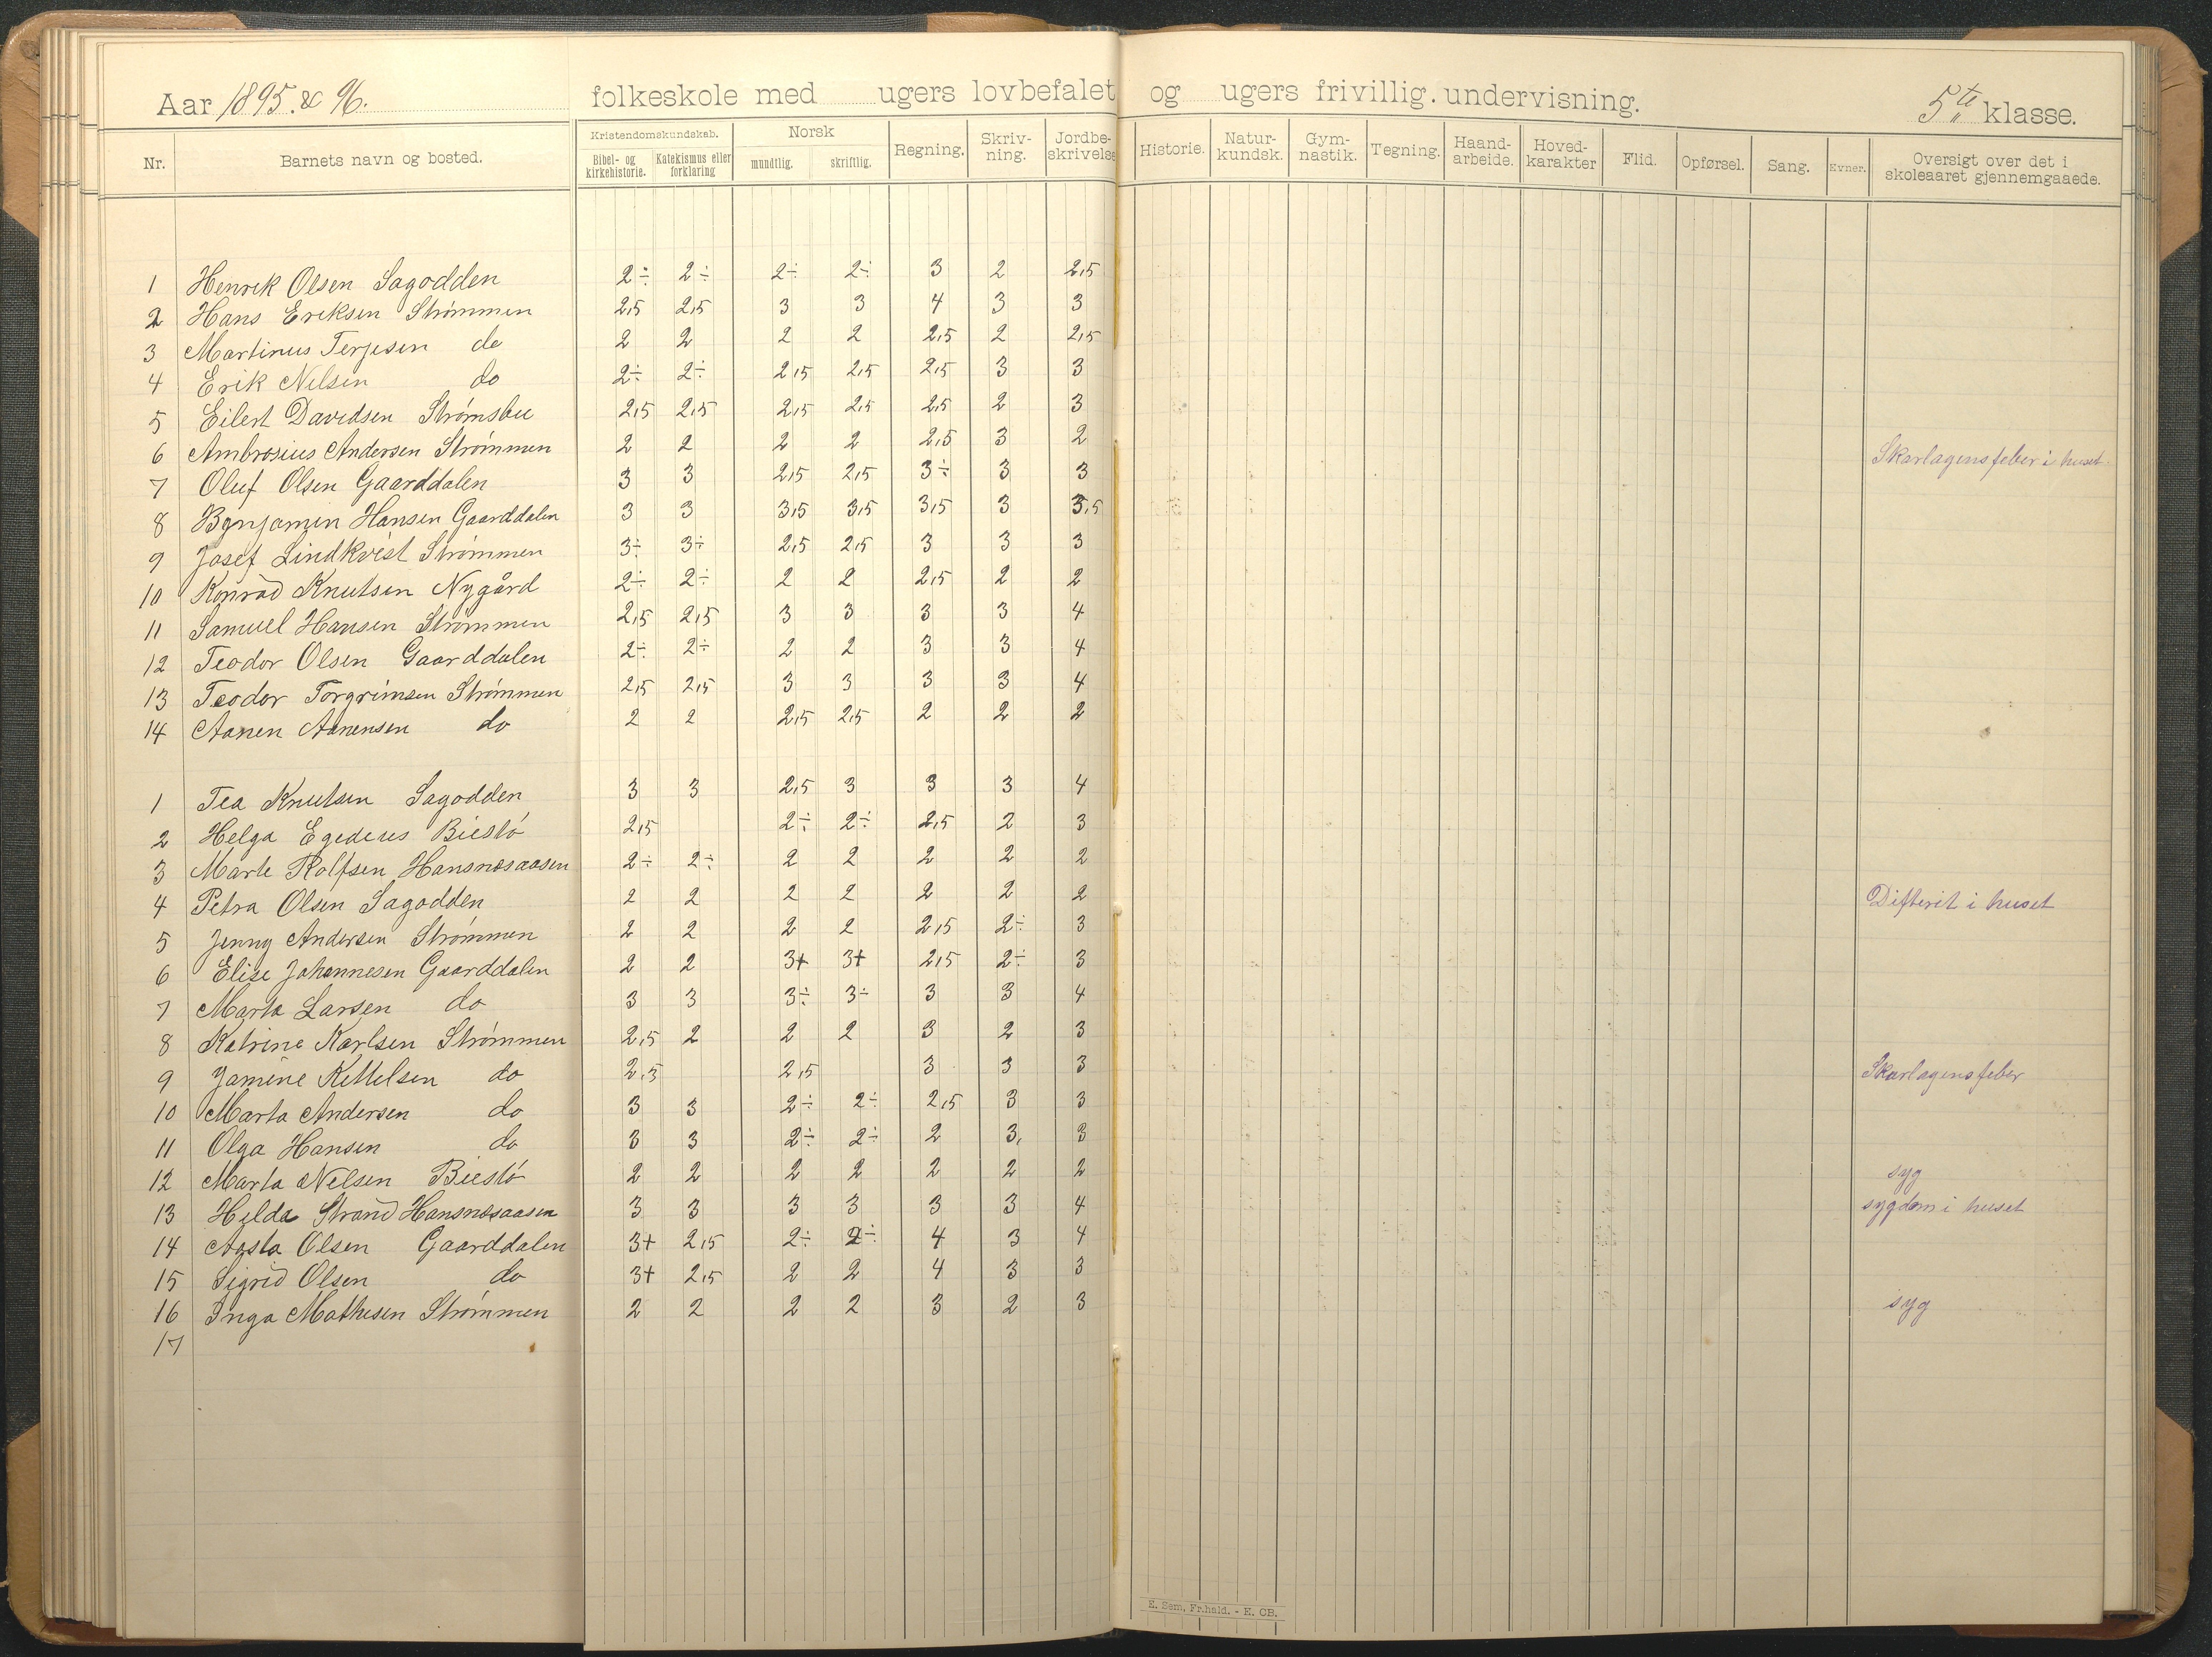 Aar 1895 & 96. folkeskole med ugers lovbefalet og ugers frivillig. undervisning. 5te klasse.
Nr. Barnets navn og bosted. Kristendomskundskab. Bibel- og kirkehistorie. Katekismus eller forklaring Norsk mundtlig. skriftlig. Regning. Skriv-ning. Jordbe-skrivelse Historie. Natur-kundsk. Gym-nastik. Tegning. Haand-arbeide. Hoved-karakter Flid. Opførsel. Sang. Evner. Oversigt over det i skoleaaret gjennemgaaede.
1 Henrik Olsen Sagodden 2÷ 2÷ 2÷ 2÷ 3 2 2,5
2 Hans Eriksen Strømmen 2,5 2,5 3 3 4 3 3
3 Martinus Terjesen do 2 2 2 2 2,5 2 2,5
4 Erik Nilsen do 2÷ 2÷ 2,5 2,5 2,5 3 3
5 Eilert Davidsen Strømsbu 2,5 2,5 2,5 2,5 2,5 2 3
6 Ambrosius Andersen Strømmen 2 2 2 2 2,5 3 2 Skarlagensfeber i huset.
7 Oluf Olsen Gaarddalen 3 3 2,5 2,5 3÷ 3 3
8 Bynjamin Hansen Gaarddalen 3 3 3,5 3,5 3,5 3 3,5
9 Josef Lindkvist Strømmen 3÷ 3÷ 2,5 2,5 3 3 3
10 Konrad Knutsen Nygård 2÷ 2÷ 2 2 2,5 2 2
11 Samuel Hansen Strømmen 2,5 2,5 3 3 3 3 4
12 Teodor Olsen Gaarddalen 2÷ 2÷ 2 2 3 3 4
13 Teodor Torgrimsen Strømmen 2,5 2,5 3 3 3 3 4
14 Aanen Aanensen do 2 2 2,5 2,5 2 2 2
1 Tea Knutsen Sagodden 3 3 2,5 3 3 3 4
2 Helga Egedius Biestø 2,5 2÷ 2÷ 2,5 2 3
3 Marte Rolfsen Hansnæsaasen 2÷ 2÷ 2 2 2 2 2
4 Petra Olsen Sagodden 2 2 2 2 2 2 2 Difterit i huset
5 Jenny Andersen Strømmen 2 2 2 2 2,5 2÷ 3
6 Elise Johannesen Gaarddalen 2 2 3+ 3+ 2,5 2÷ 3
7 Marta Larsen do 3 3 3÷ 3÷ 3 3 4
8 Katrine Karlsen Strømmen 2,5 2 2 2 3 2 3
9 Jamine Kittelsen do 2,5 2,5 3 3 3 Skarlagensfeber
10 Marta Andersen do 3 3 2÷ 2÷ 2,5 3 3
11 Olga Hansen do 3 3 2÷ 2÷ 2 3, 3
12 Marta Nelsen Biestø 2 2 2 2 2 2 2 syg
13 Helda Strand Hansnæsaasen 3 3 3 3 3 3 4 sygdom i huset
14 Agsta Olsen Gaarddalen 3+ 2,5 2÷ 2÷ 4 3 4
15 Sigrid Olsen do 3+ 2,5 2 2 4 3 3
16 Inga Mathisen Strømmen 2 2 2 2 3 2 3 syg
17
E. Sem, Fr.hald. - E. CB.